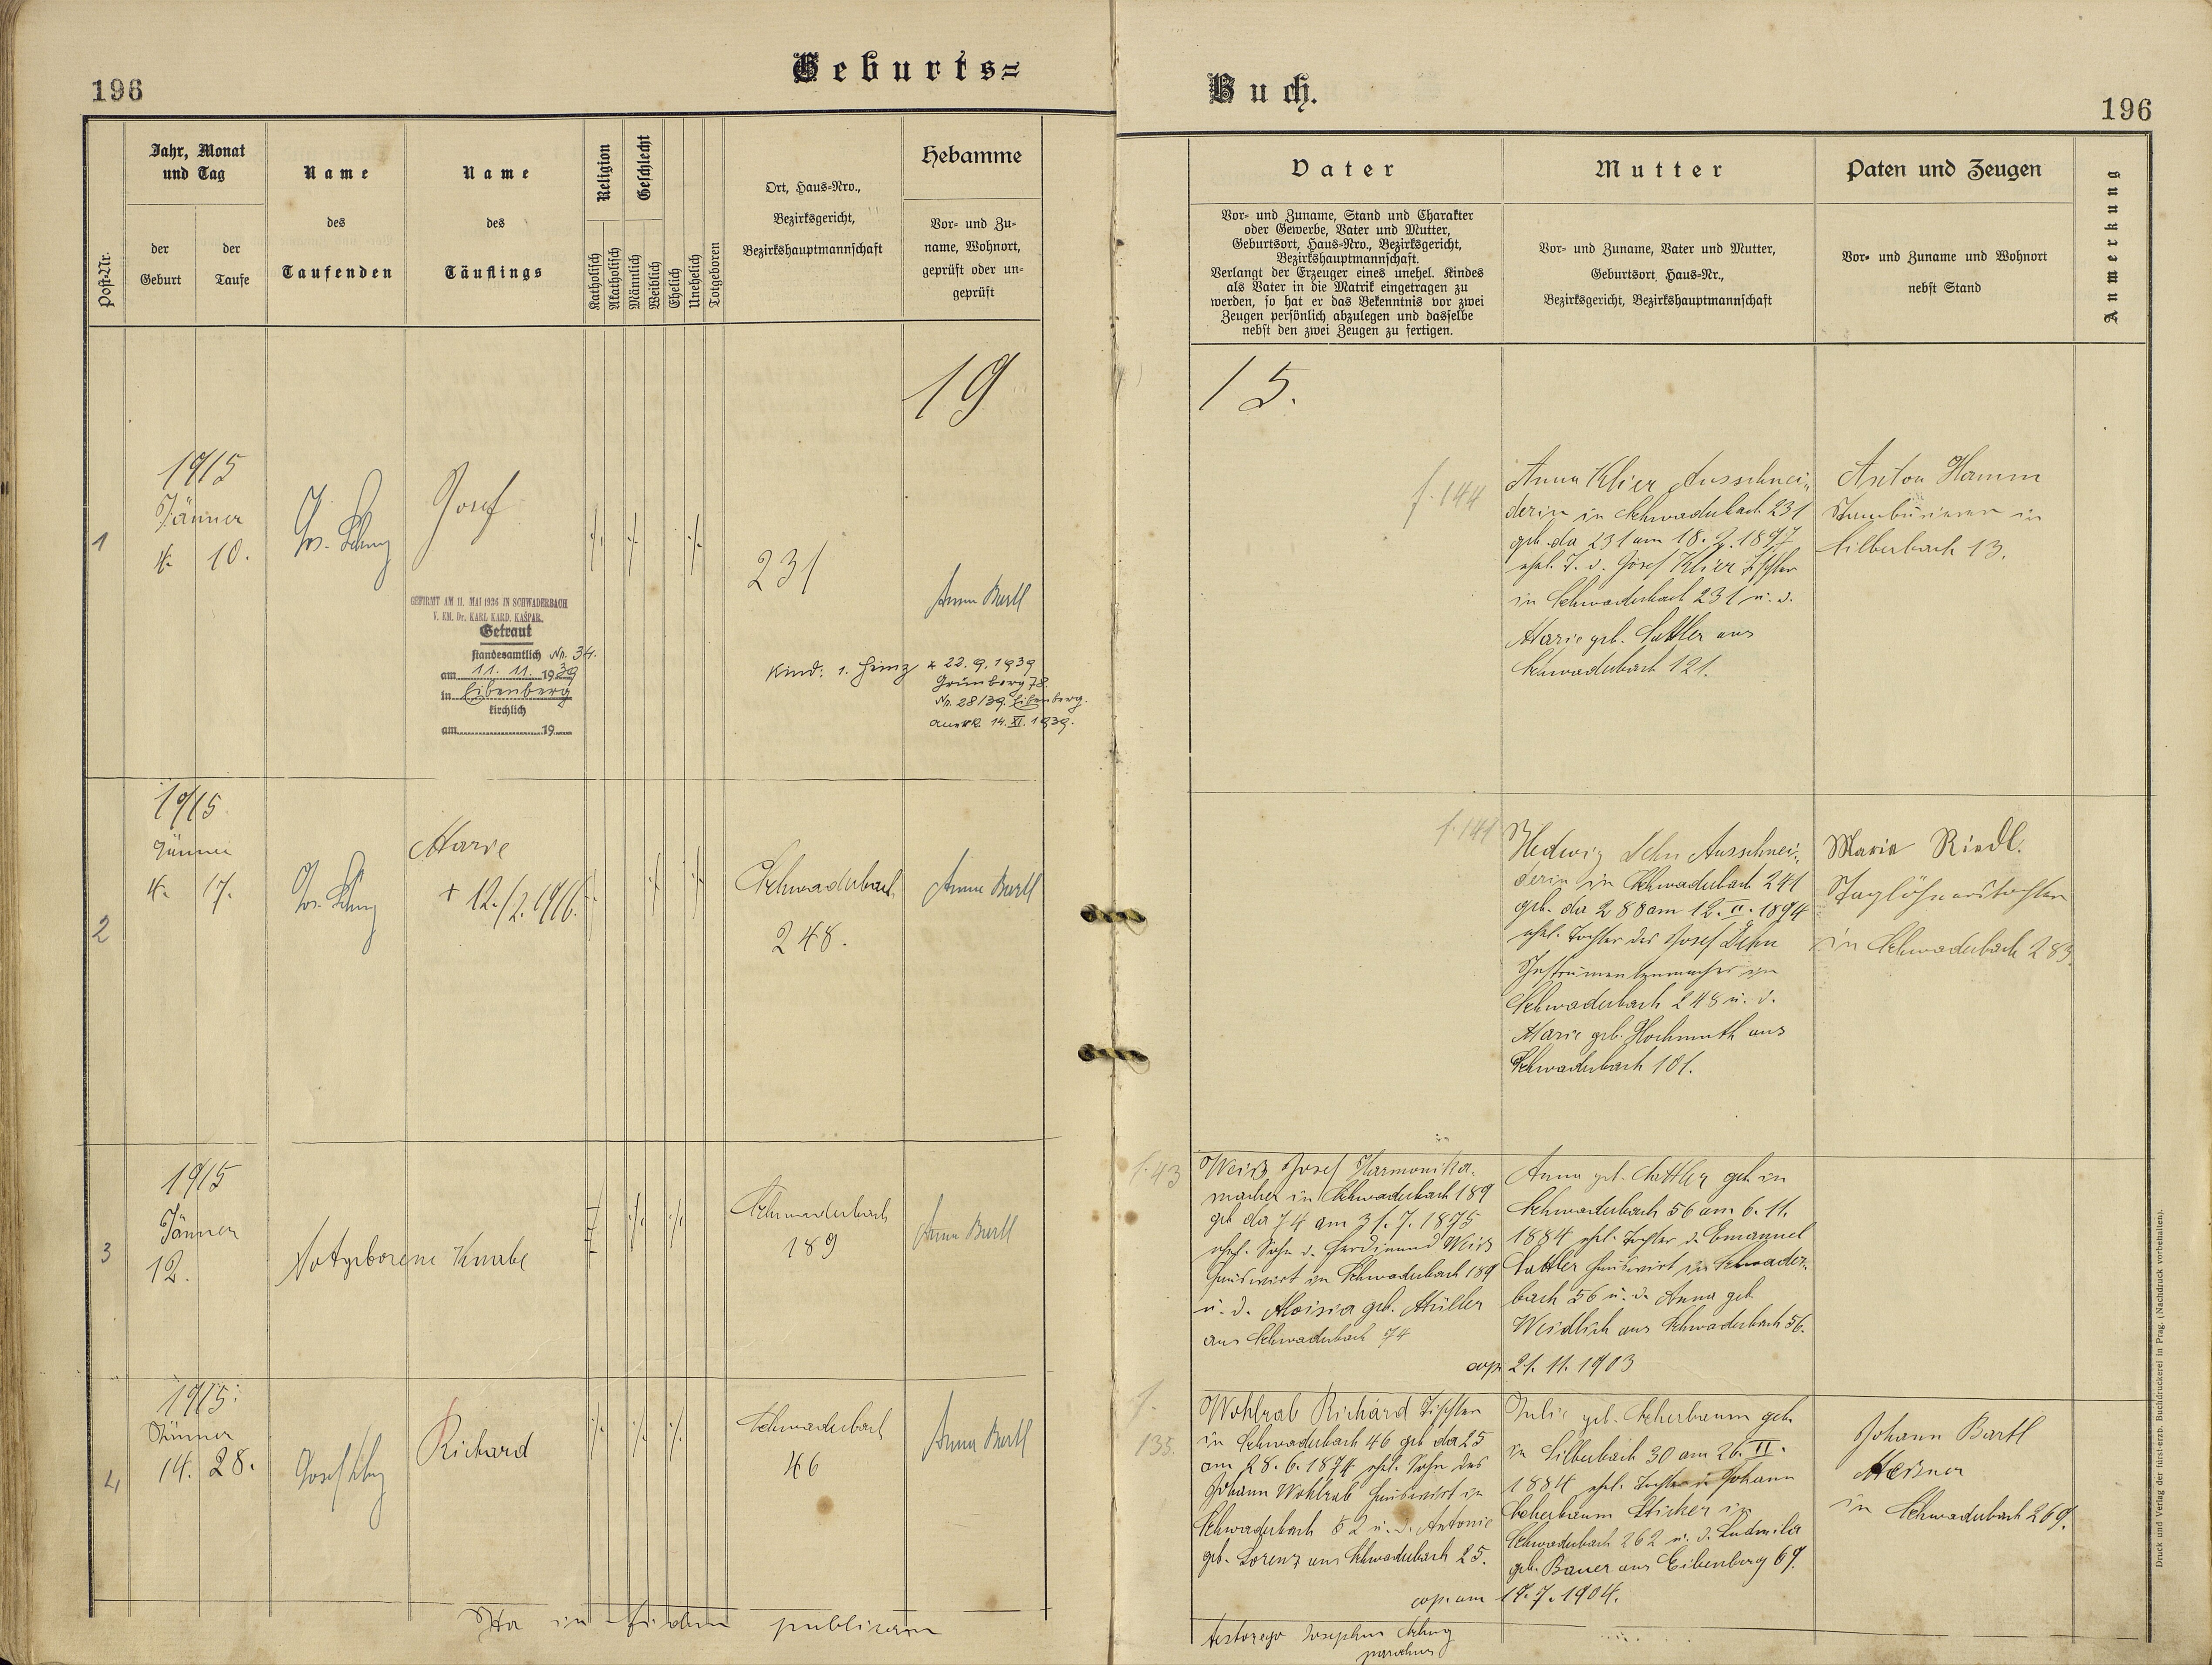 196
Geburts=
Jahr, Monat
und Tag
der
Geburt
der
Taufe
Post-Nr.
Name
des
Taufenden
Name
des
Täuflings
Religion
Katholisch
Akatholisch
Geschlecht
Männlich
Weiblich
Ehelich
Unehelich
Totgeboren
Ort, Haus=Nro.,
Bezirksgericht,
Bezirkshauptmannschaft
Hebamme
Vor= und Zu=
name, Wohnort,
geprüft oder un=
geprüft
19
1
1915
Jänner
4. 10.
Josef
231
Anna Bartl
GEFIRMT AM 11. MAI 1926 IN SCHWADERBACH
V. EM. Dr. KARL KARD. KAŠPAR.
Getraut
standesamtlich Nr. 34.
am 11. 11. 1939
in Eibenberg
kirchlich
am 19
Kind: 1. Heinz * 22. 9. 1939
Grünberg 78.
Nr. 28/39. Eibenberg.
anerk. 14. XI. 1939.
2
1915
Jänner
4. 17.
Marie
+ 12./2. 1916.
Schwaderbach
248.
Anna Bartl
3
1915
Jänner
12.
Notgeborene Knabe
Schwaderbach
189
Anna Bartl
4
1915.
Jänner
14. 28.
Richard
Schwaderbach
46
Anna Bartl
Ita in fidem publicam
Buch.
196
Vater
Vor= und Zuname, Stand und Charakter
oder Gewerbe, Vater und Mutter,
Geburtsort, Haus=Nro., Bezirksgericht,
Bezirkshauptmannschaft.
Verlangt der Erzeuger eines unehel. Kindes
als Vater in die Matrik eingetragen zu
werden, so hat er das Bekenntnis vor zwei
Zeugen persönlich abzulegen und dasselbe
nebst den zwei Zeugen zu fertigen.
Mutter
Vor= und Zuname, Vater und Mutter,
Geburtsort, Haus=Nr.,
Bezirksgericht, Bezirkshauptmannschaft
Paten und Zeugen
Vor= und Zuname und Wohnort
nebst Stand
Anmerkung
15.
f. 144
Anna Klier Ausschnei=
derin in Schwaderbach 231
geb. da 231 am 18. 2. 1897
ehel. T. d. Josef Klier Tischler
in Schwaderbach 231 u. d.
Marie geb. Sattler aus
Schwaderbach 121.
Anton Hamm
in
Silberbach 13.
f. 141
Hedwig Dehn Ausschnei=
derin in Schwaderbach 241
geb. da 288 am 12. II. 1894
ehel. Tochter des Josef Dehn
Instrumentenmacher in
Schwaderbach 248 u. d.
Marie geb. Hochmuth aus
Schwaderbach 101.
Marie Riedl.
Taglöhnerstochter
in Schwaderbach 283.
f. 43
Weiß Josef Harmonika=
macher in Schwaderbach 189
geb. da 74 am 31. 7. 1875
ehel. Sohn d. Ferdinand Weiß
Hauswirt in Schwaderbach 189
u. d. Aloisia geb. Müller
aus Schwaderbach 74
Anna geb. Sattler geb. in
Schwaderbach 56 am 6. 11.
1884 ehel. Tochter d. Emanuel
Sattler Hauswirt in Schwader=
bach 56 u. d. Anna geb.
Weidlich aus Schwaderbach 56.
cop. 21. 11. 1903
f.
135.
Wohlrab Richard Tischler
in Schwaderbach 46 geb. da 25
am 28. 6. 1874 ehel. Sohn des
Johann Wohlrab Hauswirt in
Schwaderbach 82 u. d. Antonie
geb. Lorenz aus Schwaderbach 25.
Julie geb. Scherbaum geb.
in Silberbach 30 am 26. II.
1884 ehel. Tochter d. Johann
Scherbaum Sticker in
Schwaderbach 262 u. d. Ludmila
geb. Bauer aus Eibenberg 69.
cop. am 17. 7. 1904.
Johann Bartl
in Schwaderbach 269.
testor ego Josephus
parochus
Druck und Verlag der fürst-erzb. Buchdruckerei in Prag. (Nachdruck vorbehalten).